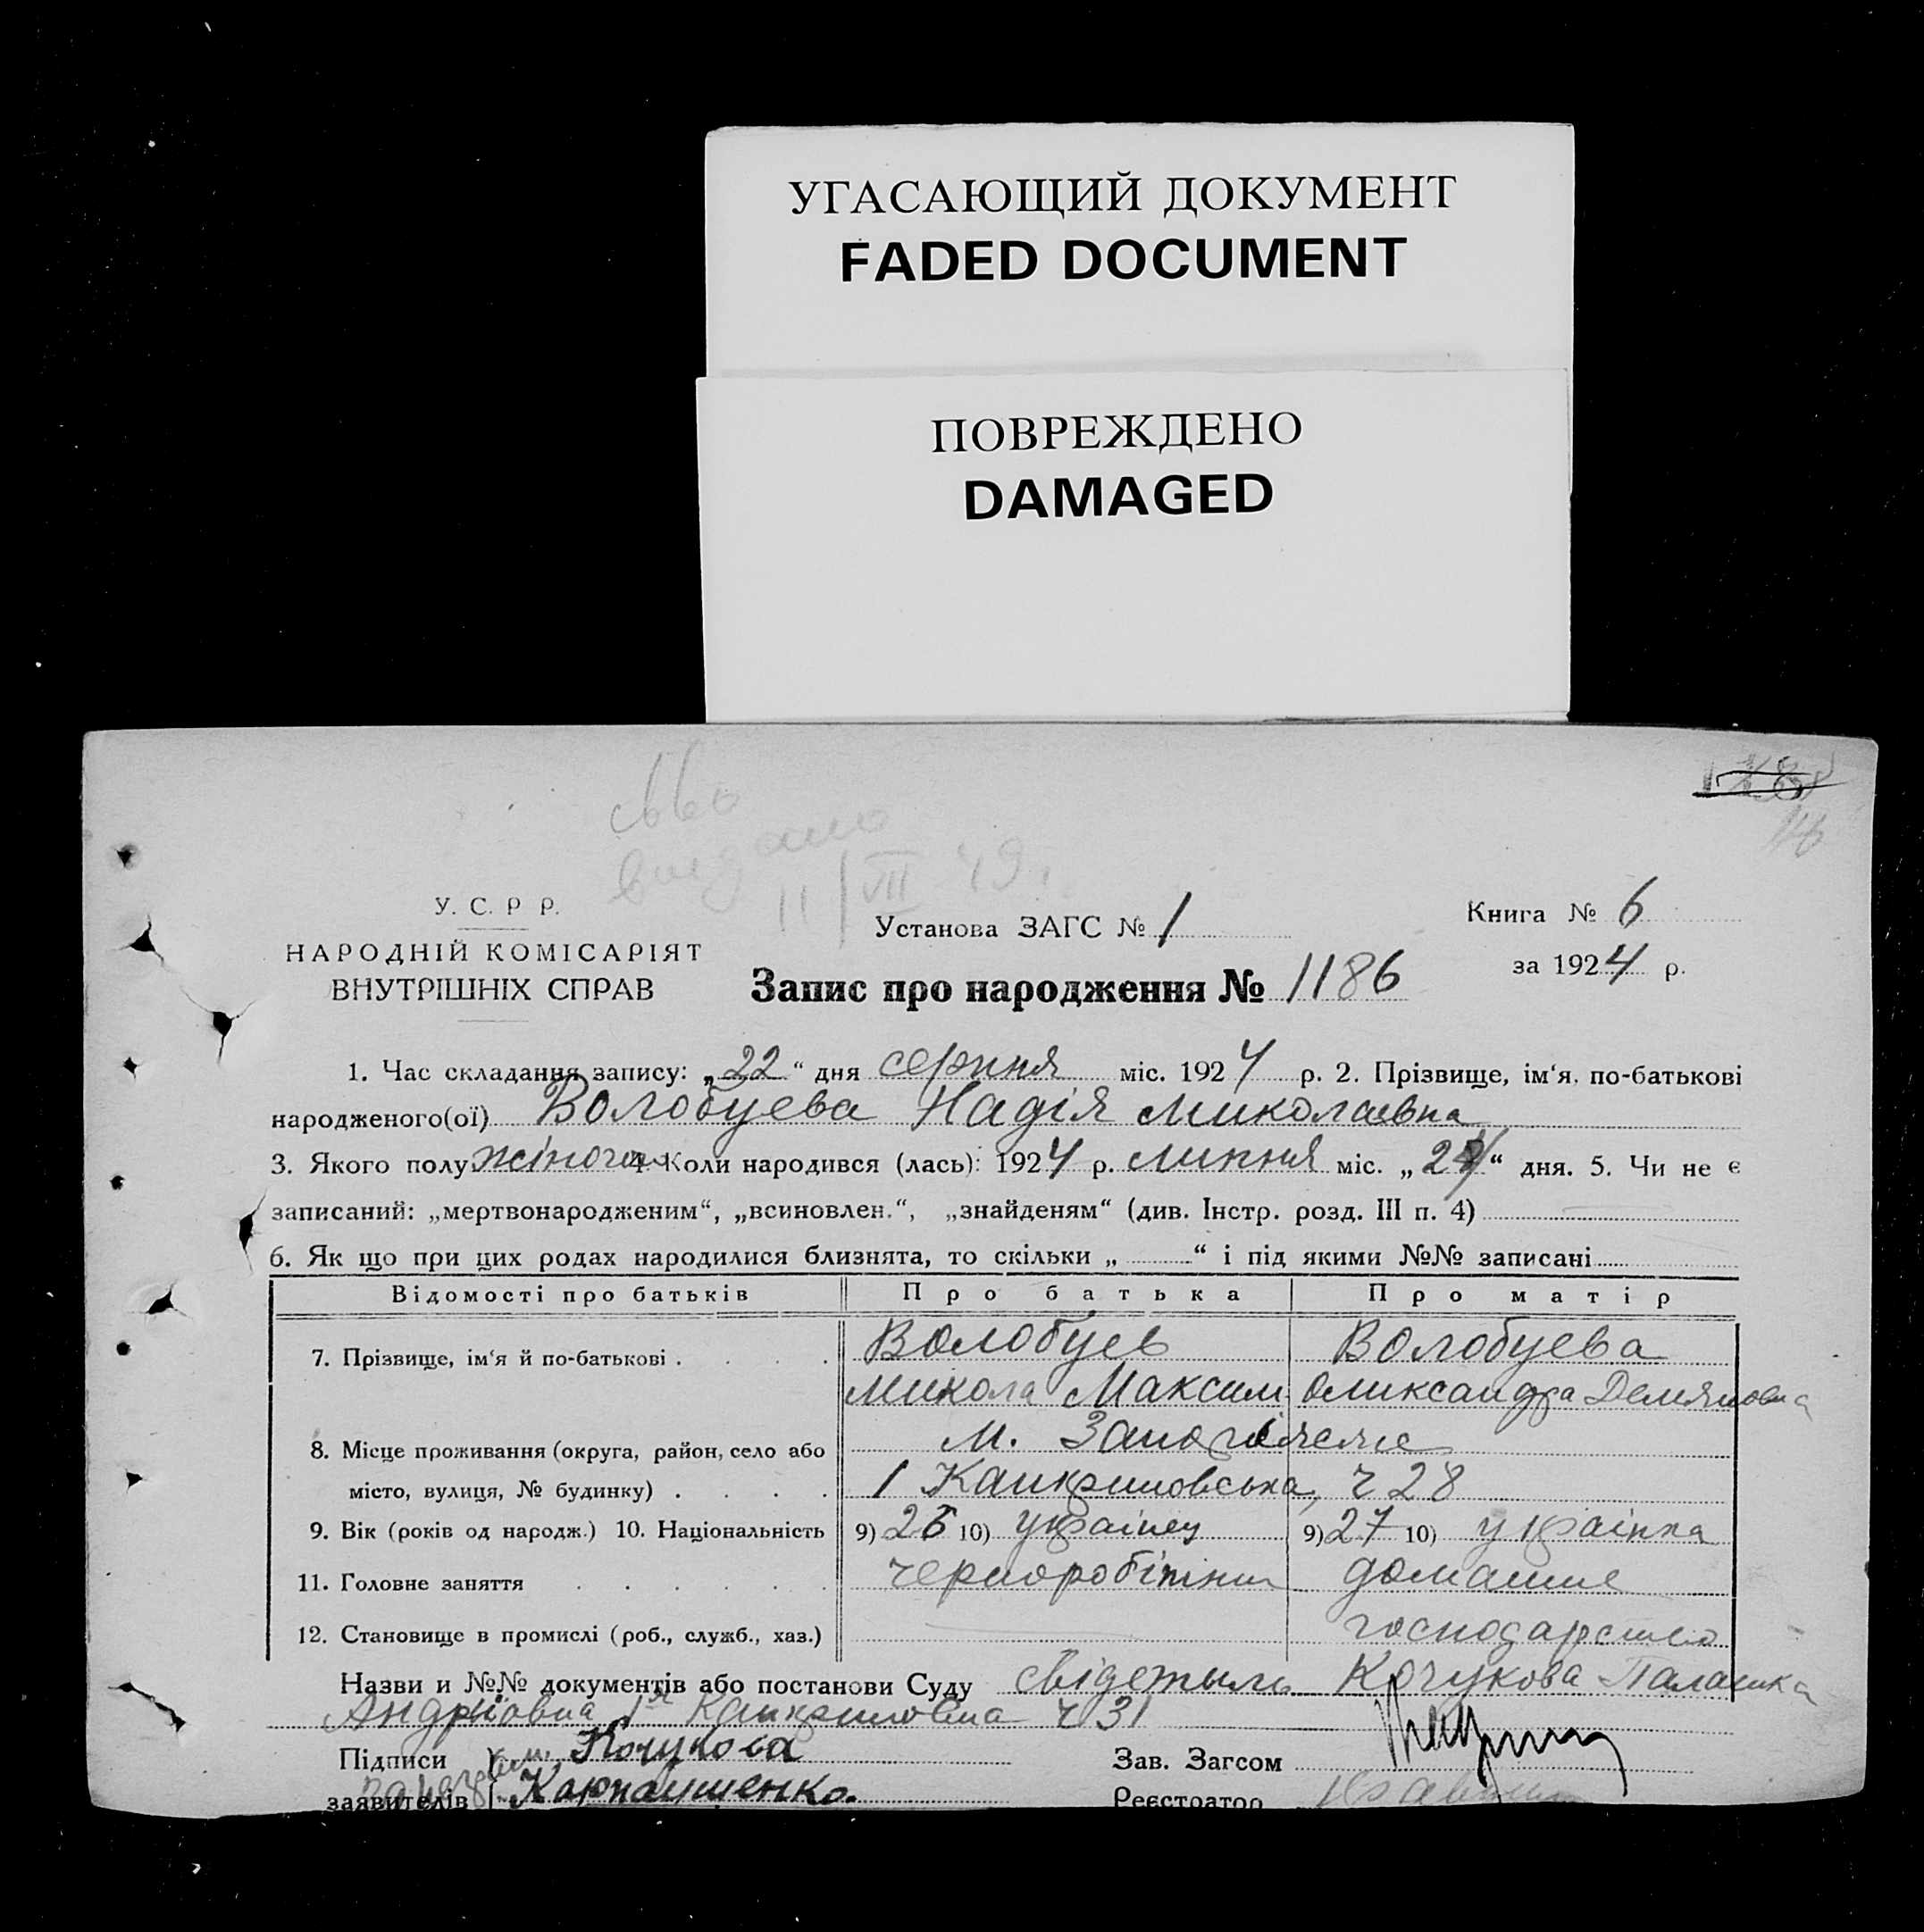 УГАСАЮЩИЙ ДОКУМЕНТ
FADED DOCUMENT
ПОВРЕЖДЕНО
DAMAGED
видано
11/VII 49 г.
У. С. Р Р.
НАРОДНІЙ КОМІСАРІЯТ
ВНУТРІШНІХ СПРАВ
Установа ЗАГС № 1
Книга № 6
за 1924 р.
Запис про народження № 1186
1. Час складання запису: „22“ дня серпня міс. 1924 р. 2. Прізвище, ім‘я, по-батькові
народженого(ої) Волобуева Надія Миколаевна
3. Якого полу жіноча 4. Коли народився (лась): 1924 р. липня міс. „24“ дня. 5. Чи не є
записаний: „мертвонародженим“, „всиновлен.“, „знайденям“ (див. Інстр. розд. III п. 4)
6. Як що при цих родах народилися близнята, то скільки „ “ і під якими №№ записані
Відомості про батьків Про батька Про матір
7. Прізвище, ім‘я й по-батькові . . . . Волобуев Волобуева
Микола Максим Олександра Демяновна
8. Місце проживання (округа, район, село або м.
місто, вулиця, № будинку) . . . . 1 ч 28
9. Вік (років од народж.) 10. Національність 9) 26 10) українец 9) 27 10) українка
11. Головне заняття . . . . . . чорноробітник домашне
12. Становище в промислі (роб., служб., хаз.) господарство
Назви и №№ документів або постанови Суду свідетыль Кочукова Палашка
Андріовна 1я ч 31
Підписи Кочукова Зав. Загсом
заявителів Карпаушенко. Реєстратор